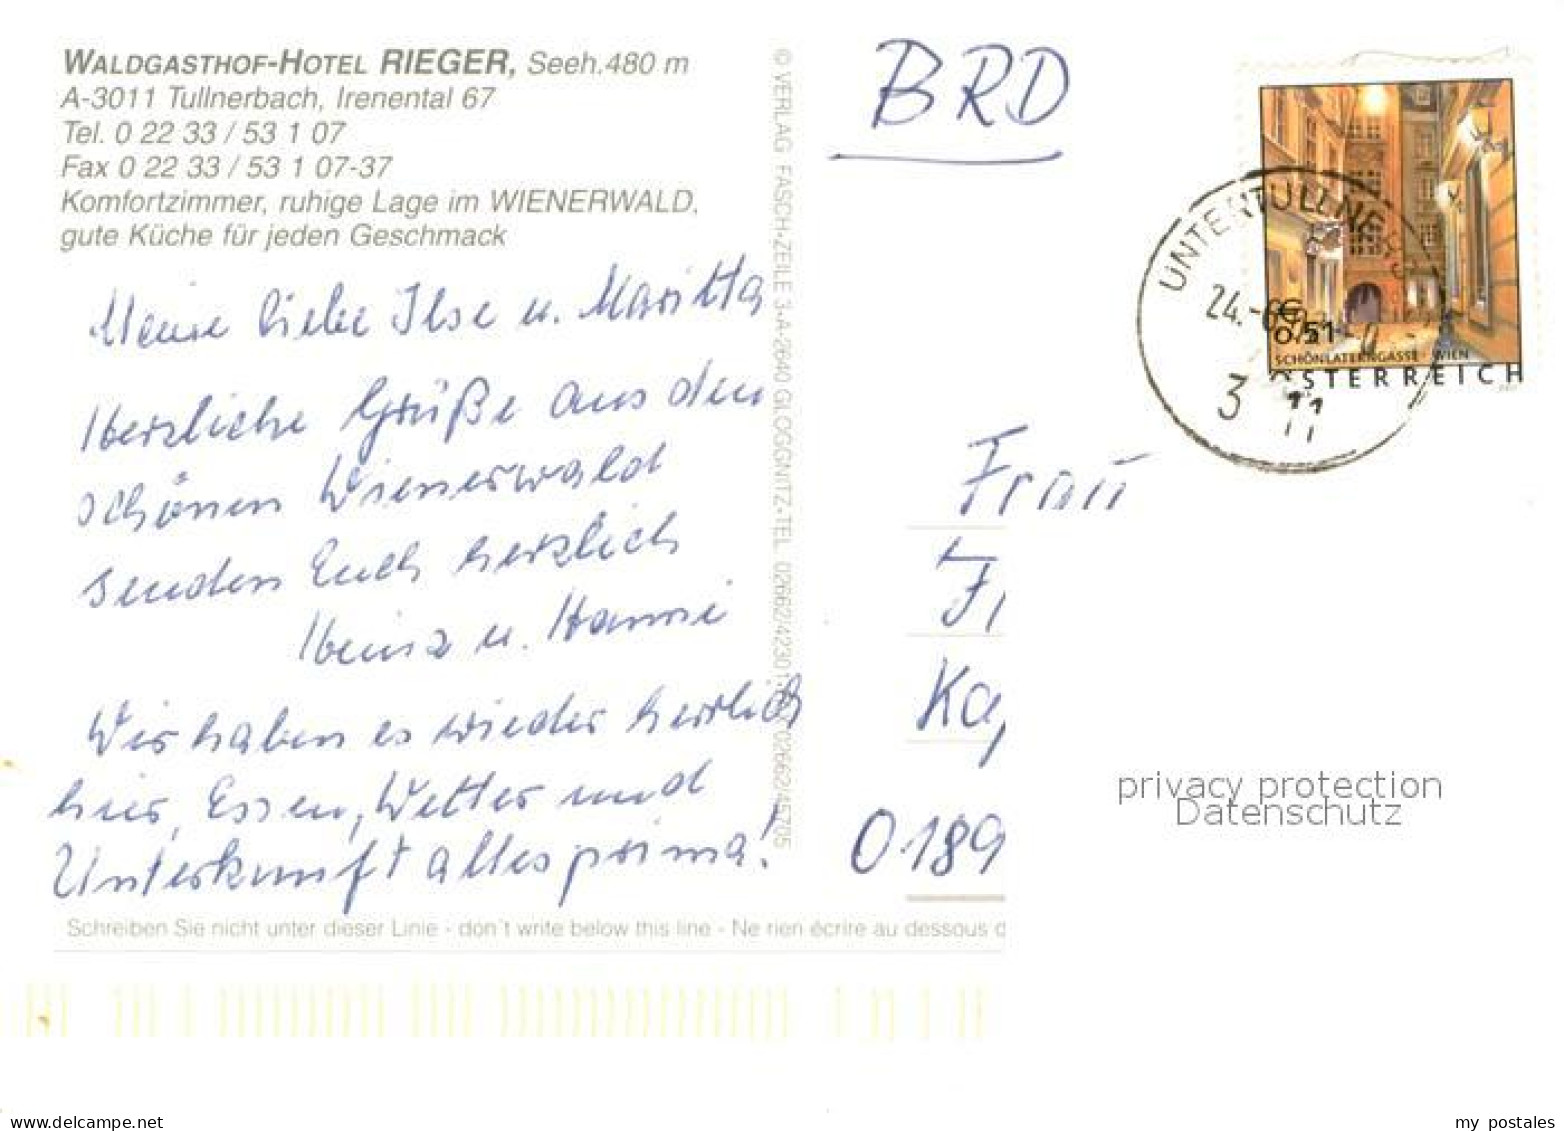 WALDGASTHOF-HOTEL RIEGER, Seeh.480 m
A-3011 Tullnerbach, Irenental 67
Tel. 0 22 33 / 53 1 07
Fax 0 22 33 / 53 1 07-37
Komfortzimmer, ruhige Lage im WIENERWALD,
gute Küche für jeden Geschmack
Meine liebe Ilse u. Maritta
Herzliche Grüße aus dem
schönen Wienerwald
senden Euch herzlich
Heinz u. Hanni
Wir haben es wieder herrlich
hier, Essen, Wetter und
Unterkunft alles prima!
Schreiben Sie nicht unter dieser Linie - don't write below this line - Ne rien écrire au dessous
© VERLAG FASCH-ZEILE 3-A-2640 GLOGGNITZ-TEL. 02662/42301 02662/45705
BRD
€
0,51
SCHÖNLATERNGASSE - WIEN
ÖSTERREICH
UNTERTULLNERB
24.
3 11
Frau
Ka
0189
privacy protection
Datenschutz
my postales